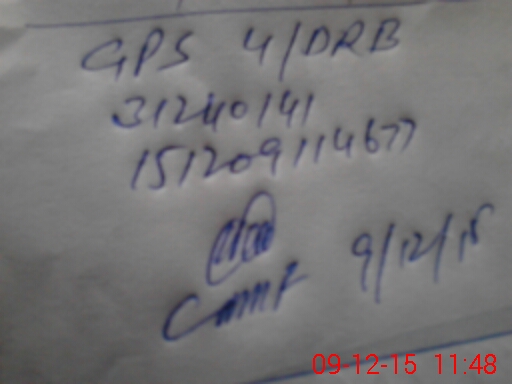 GPS 4/DRB
31240141
151209114677
9/12/15
09-12-15 11:48